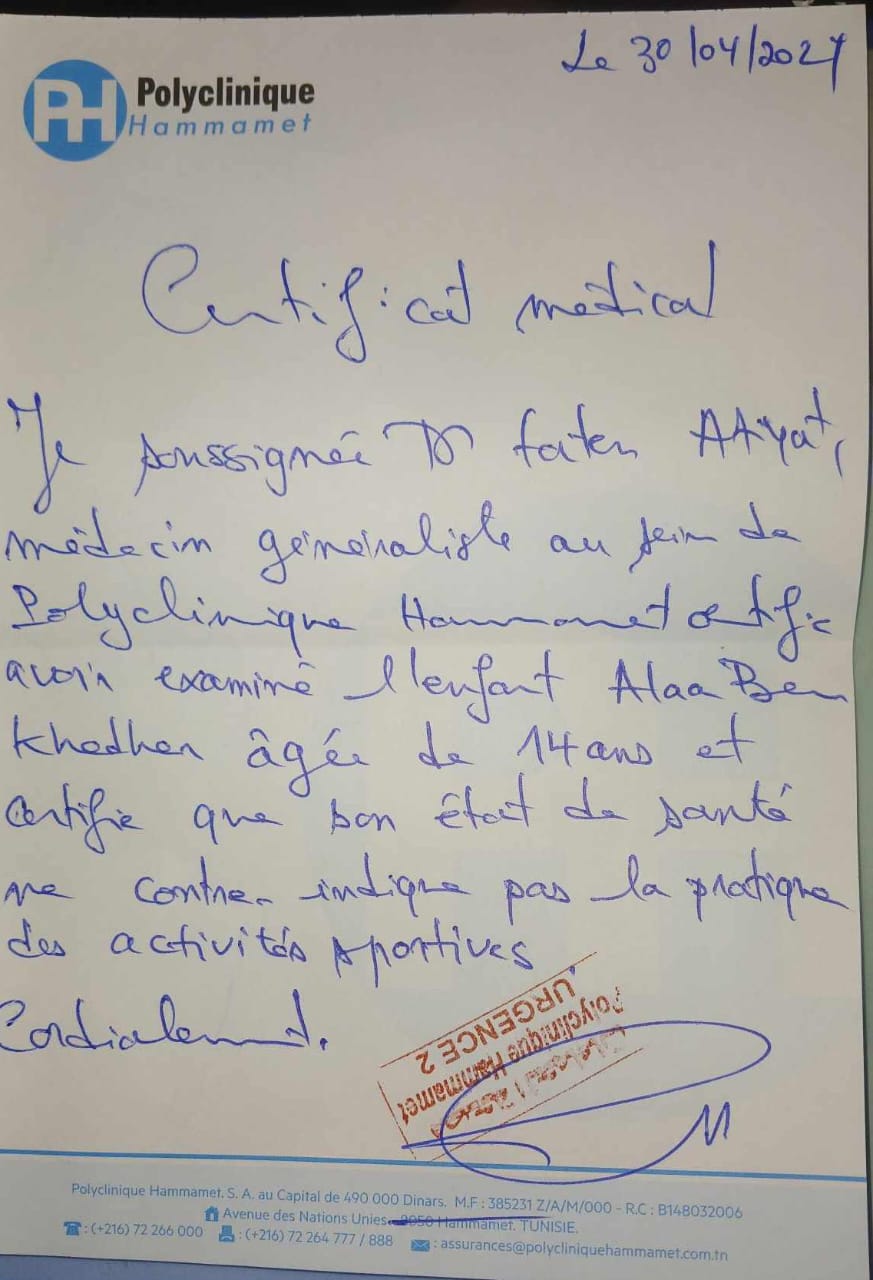 Le 30/04/2024
PH Polyclinique
Hammamet
Certificat médical
Je soussignée Dr faten
médecin généraliste au sein de
Polyclinique Hammamet certifie
avoir examiné l'enfant Alaa Ben
Khedher âgée de 14 ans et
certifie que son état de santé
ne contre-indique pas la pratique
des activités sportives
Cordialement.
Polyclinique Hammamet
URGENCE 2
Polyclinique Hammamet. S. A. au Capital de 490 000 Dinars. M.F : 385231 Z/A/M/000 - R.C : B148032006
Avenue des Nations Unies. 8050 Hammamet. TUNISIE.
: (+216) 72 266 000 : (+216) 72 264 777 / 888 : assurances@polycliniquehammamet.com.tn